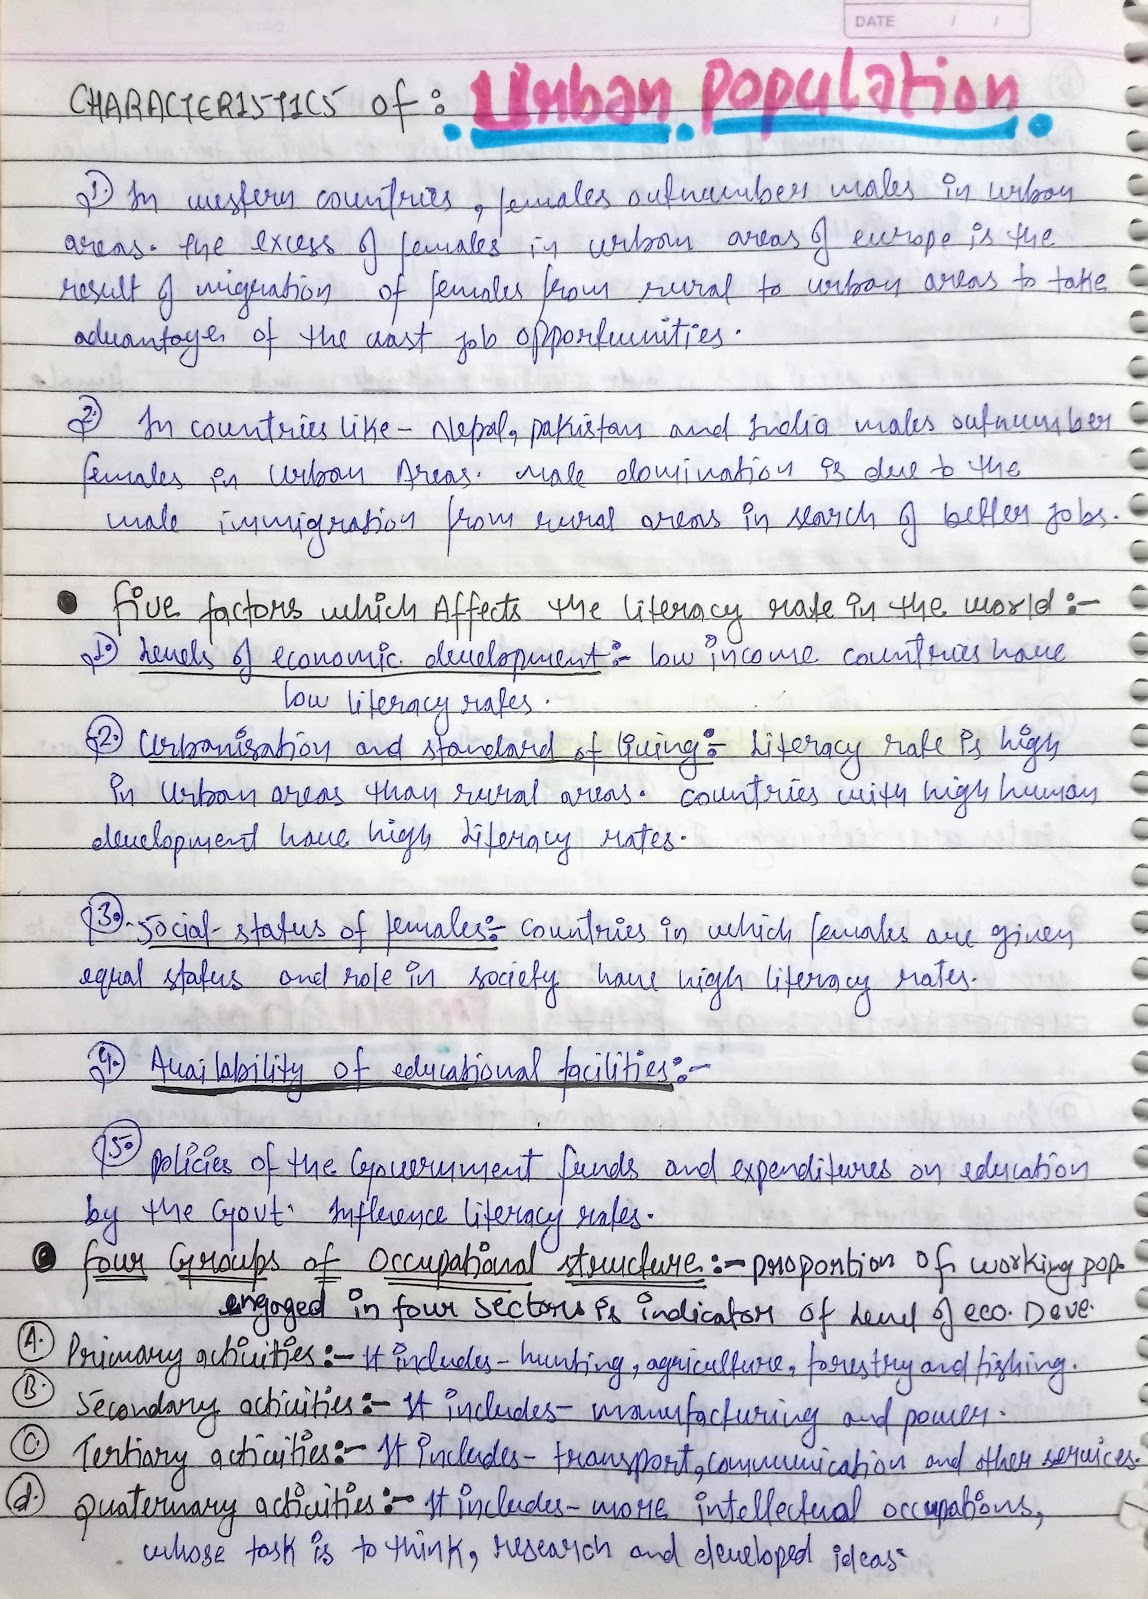 DATE / /
CHARACTERISTICS of : Urban Population
1. In western countries, females outnumber males in urban
areas. The excess of females in urban areas of europe is the
result of migration of females from rural to urban areas to take
advantages of the vast job opportunities.
2. In countries like - Nepal, pakistan and India males outnumber
females in Urban Areas. Male domination is due to the
male immigration from rural areas in search of better jobs.
• five factors which Affects the literacy rate in the world :-
1. Levels of economic development :- low income countries have
low literacy rates.
2. Urbanisation and standard of living :- Literacy rate is high
in Urban areas than rural areas. countries with high human
development have high literacy rates.
3. Social-status of females :- countries in which females are given
equal status and role in society have high literacy rates.
4. Availability of educational facilities :-
5. policies of the Government funds and expenditures on education
by the Govt. Influence literacy rates.
• four Groups of Occupational structure :- proportion of working pop.
engaged in four sectors is indicator of level of eco. Deve.
A. Primary activities :- It includes - hunting, agriculture, forestry and fishing.
B. Secondary activities :- It includes - manufacturing and power.
C. Tertiary activities :- It includes - transport, communication and other services.
d. quaternary activities :- It includes - more intellectual occupations,
whose task is to think, research and developed ideas.